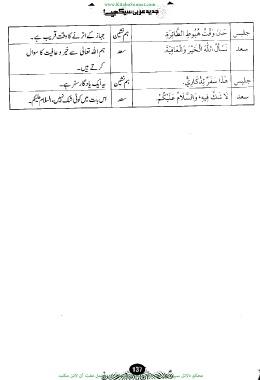 www.KitaboSunnat.com
جدید عربی سیکھیے!
جلیس حَانَ وَقْتُ هُبُوطِ الطَّائِرَةِ ہم نشین جہاز کے اترنے کا وقت قریب ہے۔
سعد نَسْأَلُ اللّٰهَ الْخَيْرَ وَالْعَافِيَةَ سعد ہم اللہ تعالیٰ سے خیر و عافیت کا سوال
کرتے ہیں۔
جلیس هٰذَا سَفَرٌ تِذْكَارِيٌّ. ہم نشین یہ ایک یادگار سفر ہے۔
سعد لَا شَكَّ فِيهِ وَالسَّلَامُ عَلَيْكُمْ سعد اس بات میں کوئی شک نہیں، السلام علیکم۔
137
محکم دلائل سے مفت آن لائن مکتبہ